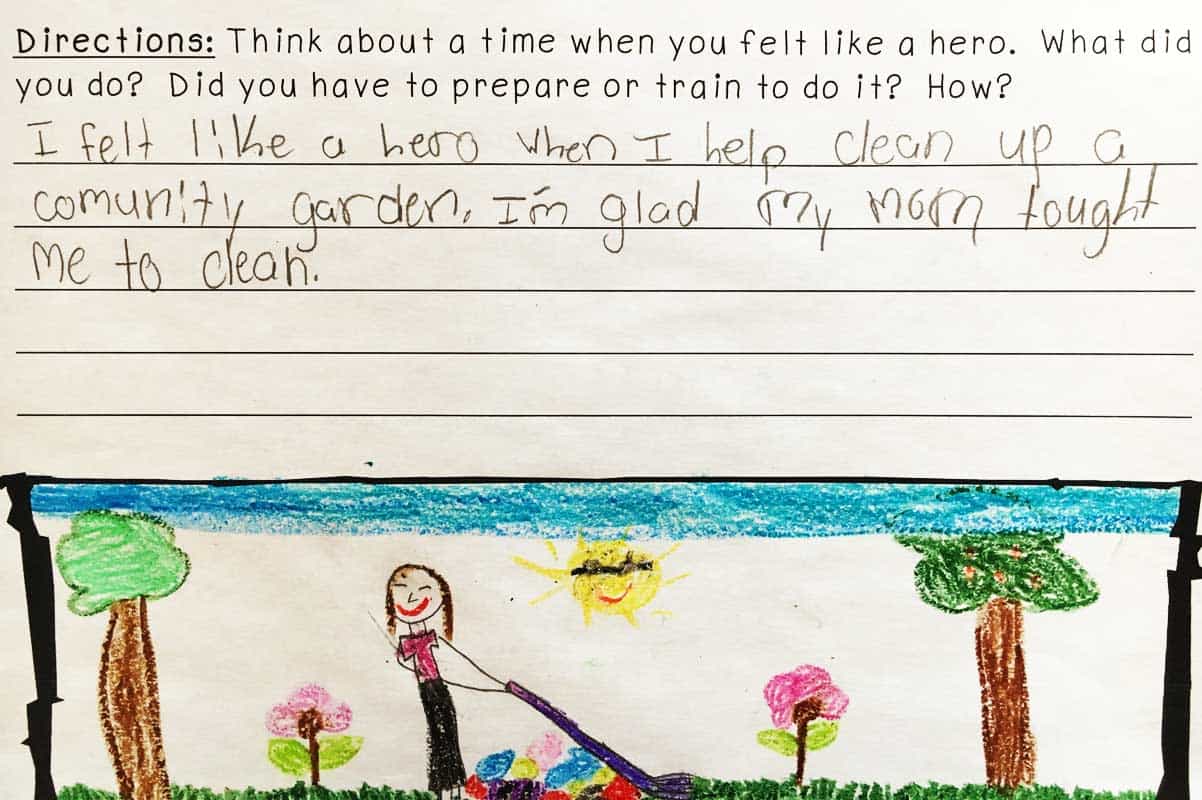 Directions: Think about a time when you felt like a hero. What did
you do? Did you have to prepare or train to do it? How?
I felt like a hero when I help clean up a
comunity garden. I'm glad my mom tought
me to clean.